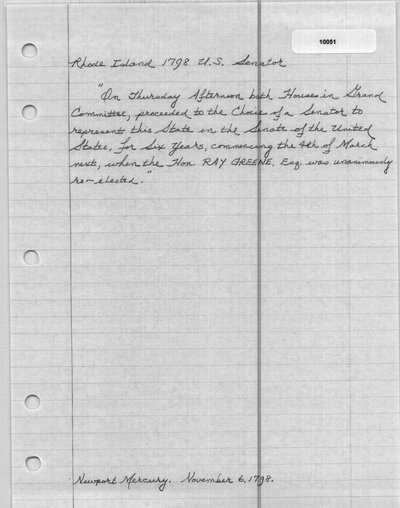 10051
Rhode Island 1798 U.S. Senator
"On Thursday Afternoon both Houses in Grand
Committee, proceeded to the Choice of a Senator to
represent this State in the Senate of the United
States, for Six Years, commencing the 4th of March
next, when the Hon. RAY GREENE, Esq. was unanimously
re-elected."
Newport Mercury. November 6, 1798.